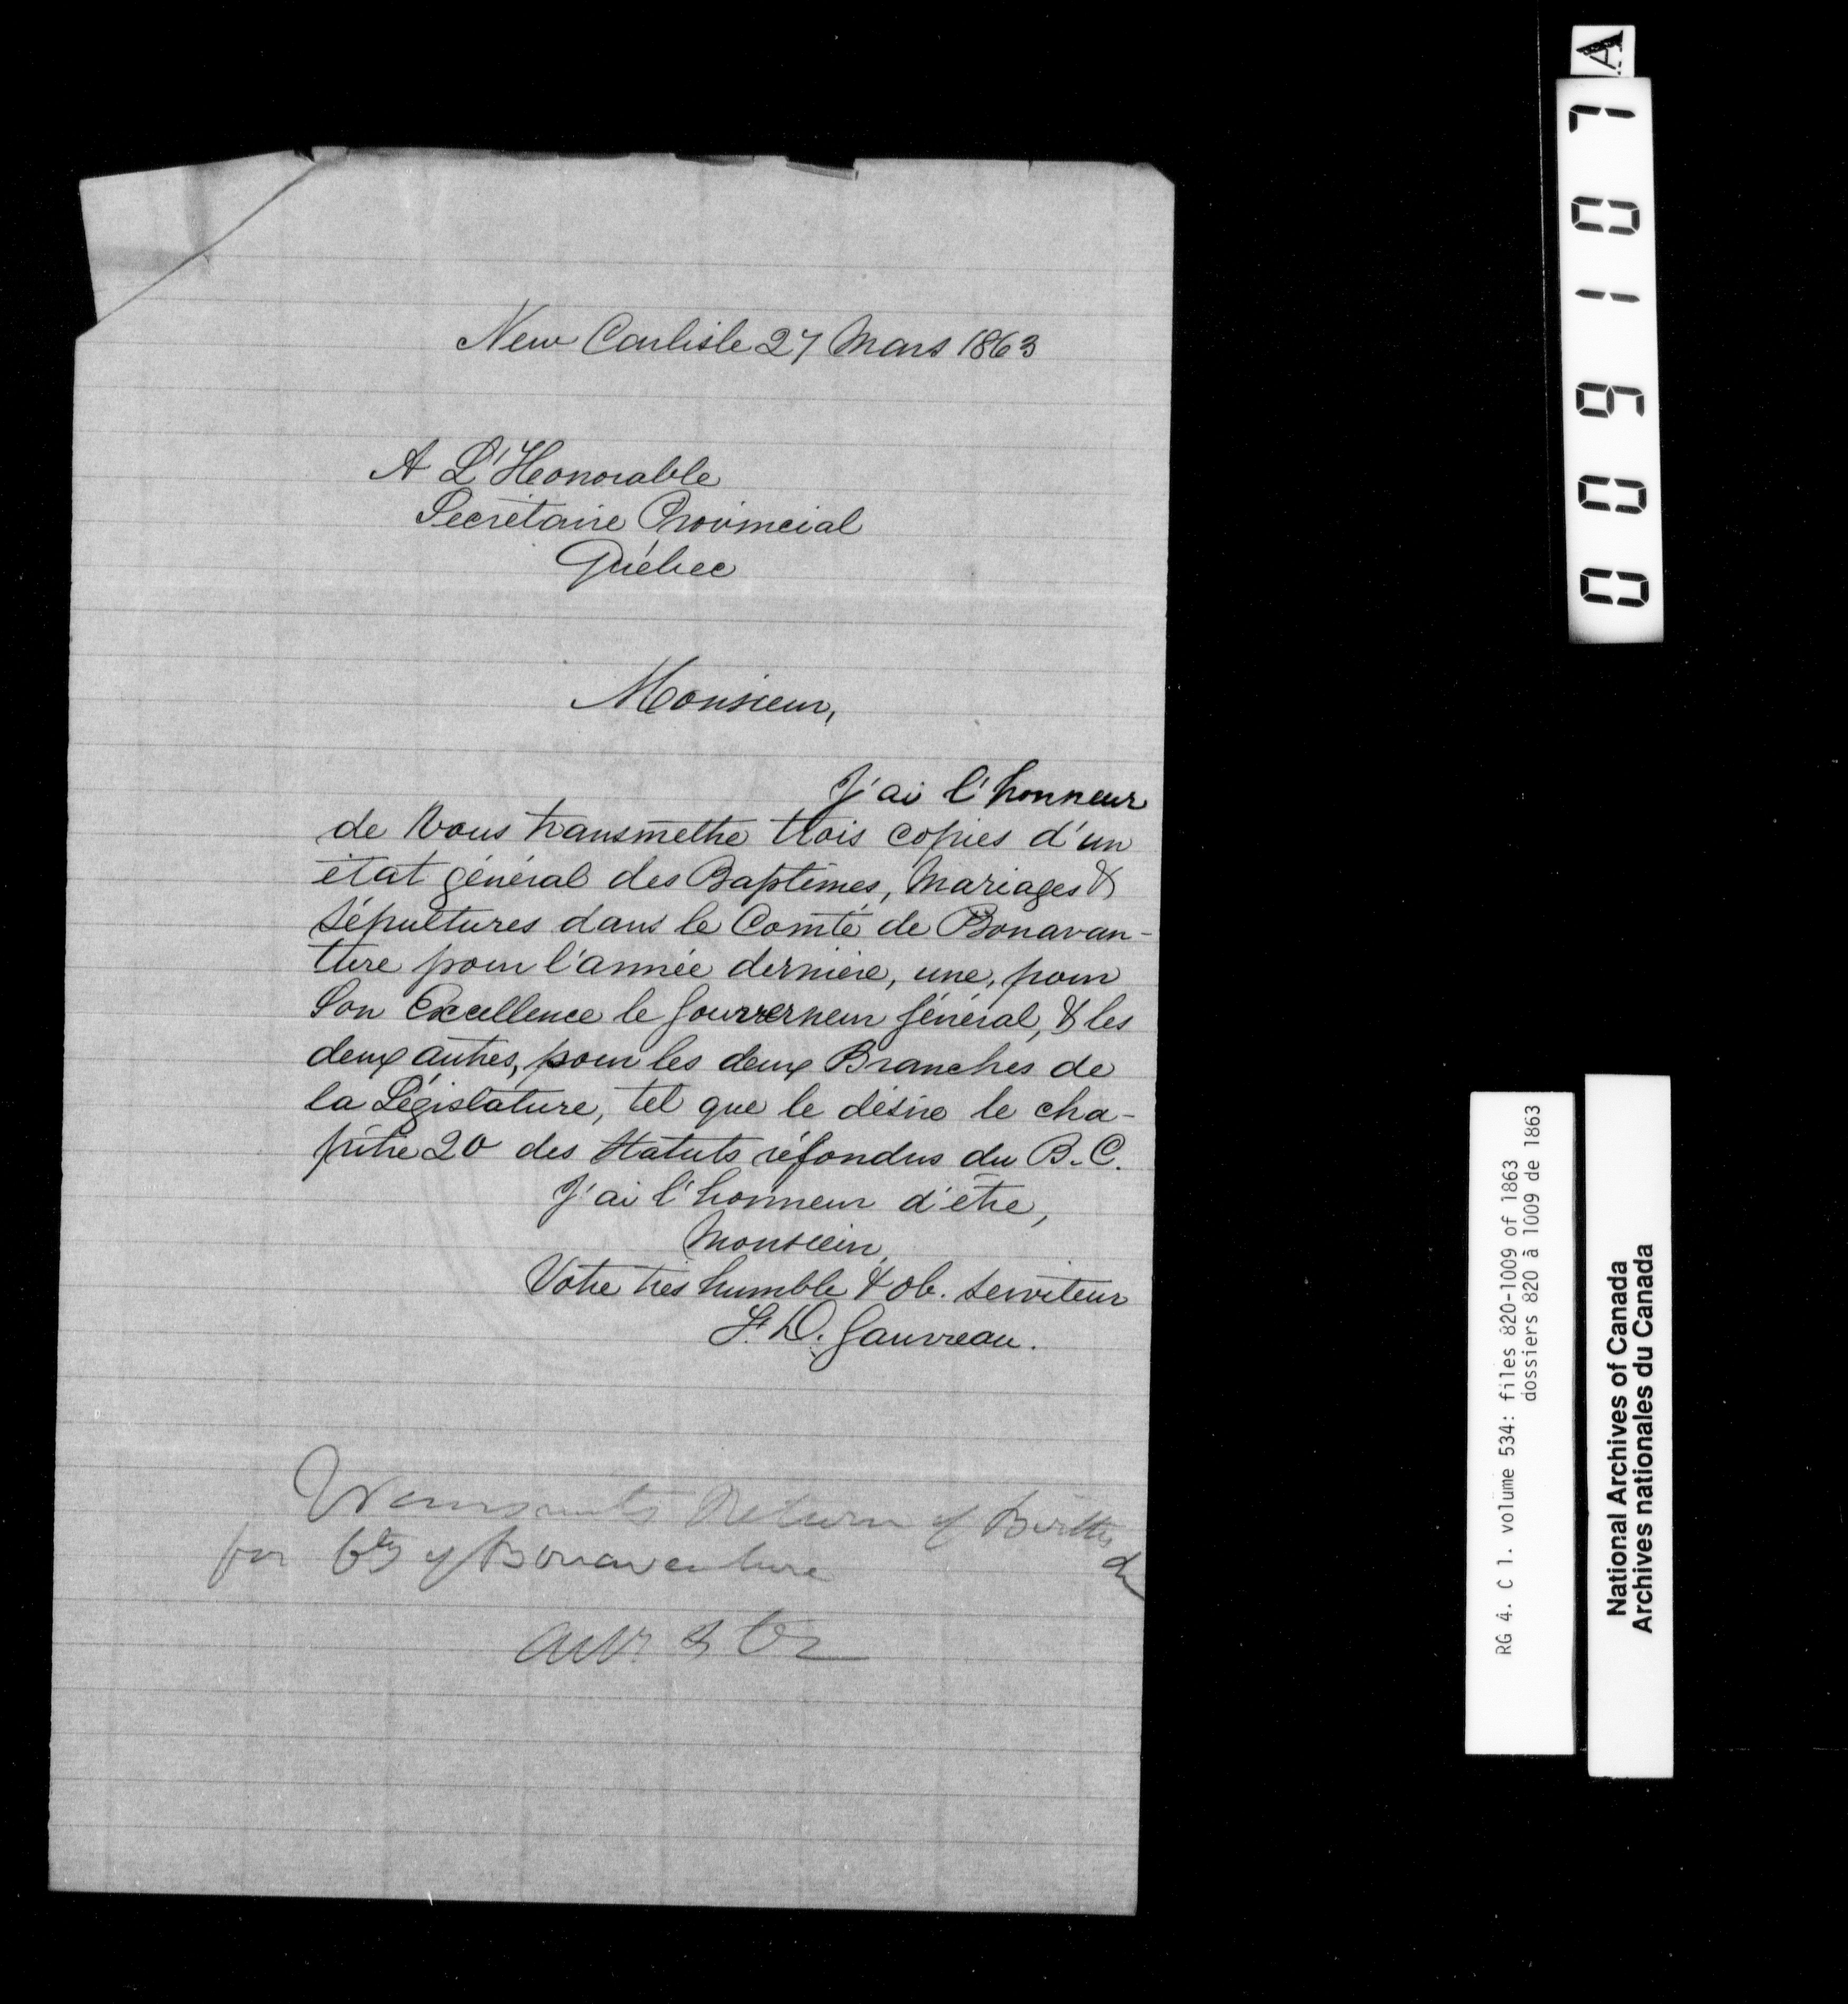 New Carlisle 27 Mars 1863
A L'Honorable
Secrétaire Provincial
Québec
Monsieur,
J'ai l'honneur
de Vous transmettre trois copies d'un
état général des Baptêmes, Mariages &
Sépultures dans le Comté de Bonavan-
ture pour l'année dernière, une, pour
Son Excellence le Gouverneur Général, & les
deux autres, pour les deux Branches de
la Législature, tel que le désire le cha-
pitre 20 des Statuts réfondus du B.C.
J'ai l'honneur d'être,
Monsieur,
Votre très humble & ob. serviteur
Gauvreau.
Return of Births
for Cty of Bonaventure
A
0 0 9 1 0 7
RG 4. C 1. volume 534: files 820-1009 of 1863
dossiers 820 à 1009 de 1863
National Archives of Canada
Archives nationales du Canada